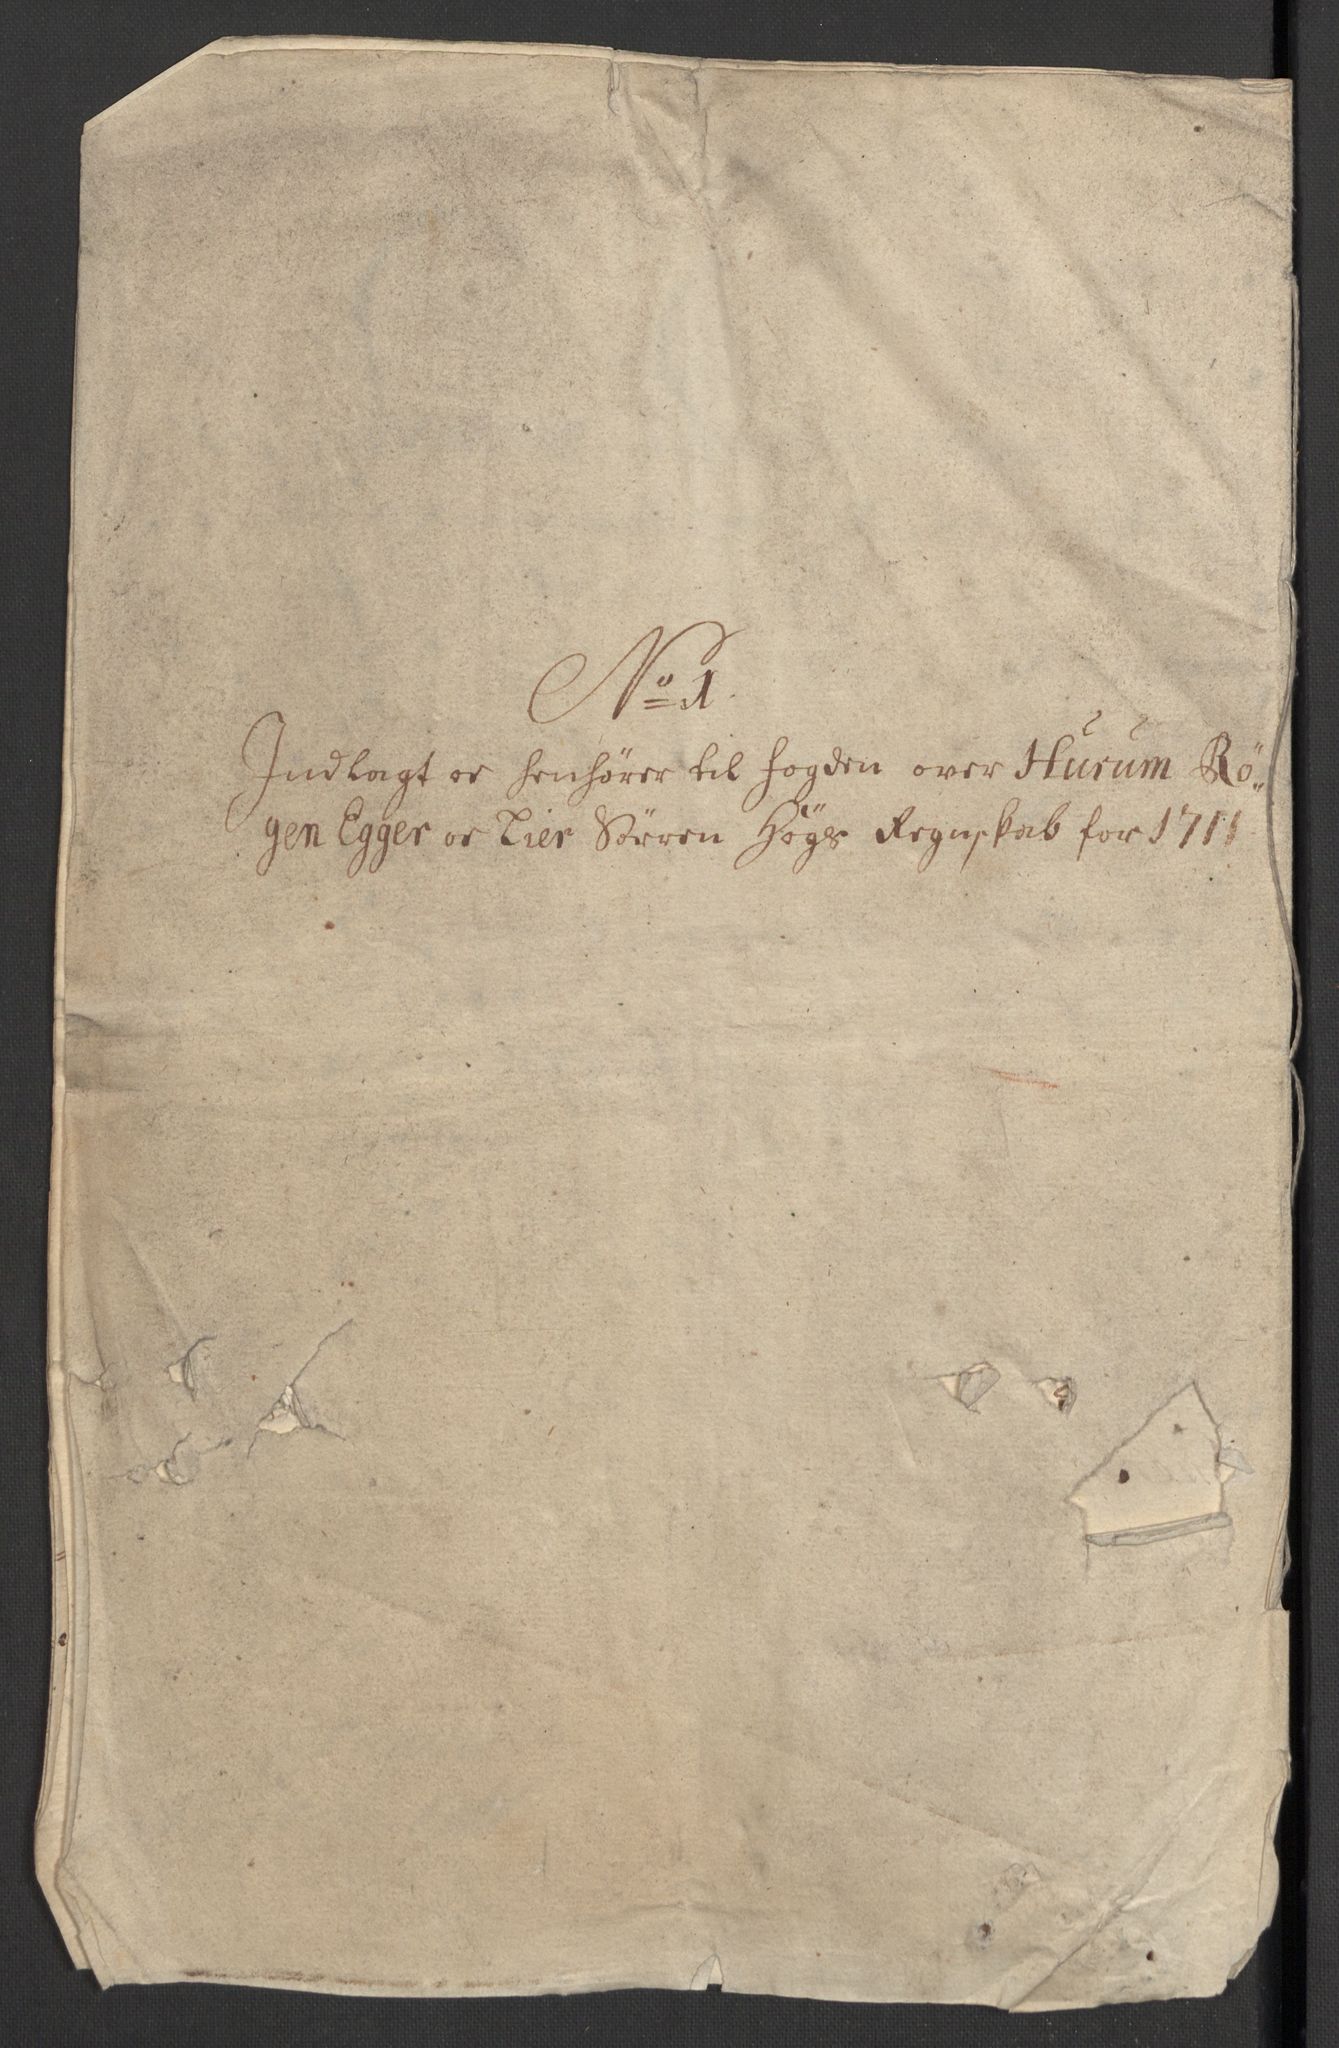 No 1.
Indlagt oc henhører til fogden over Hurum Rö-
gen Egger oc Lier Sörren Högs Regnskab for 1711